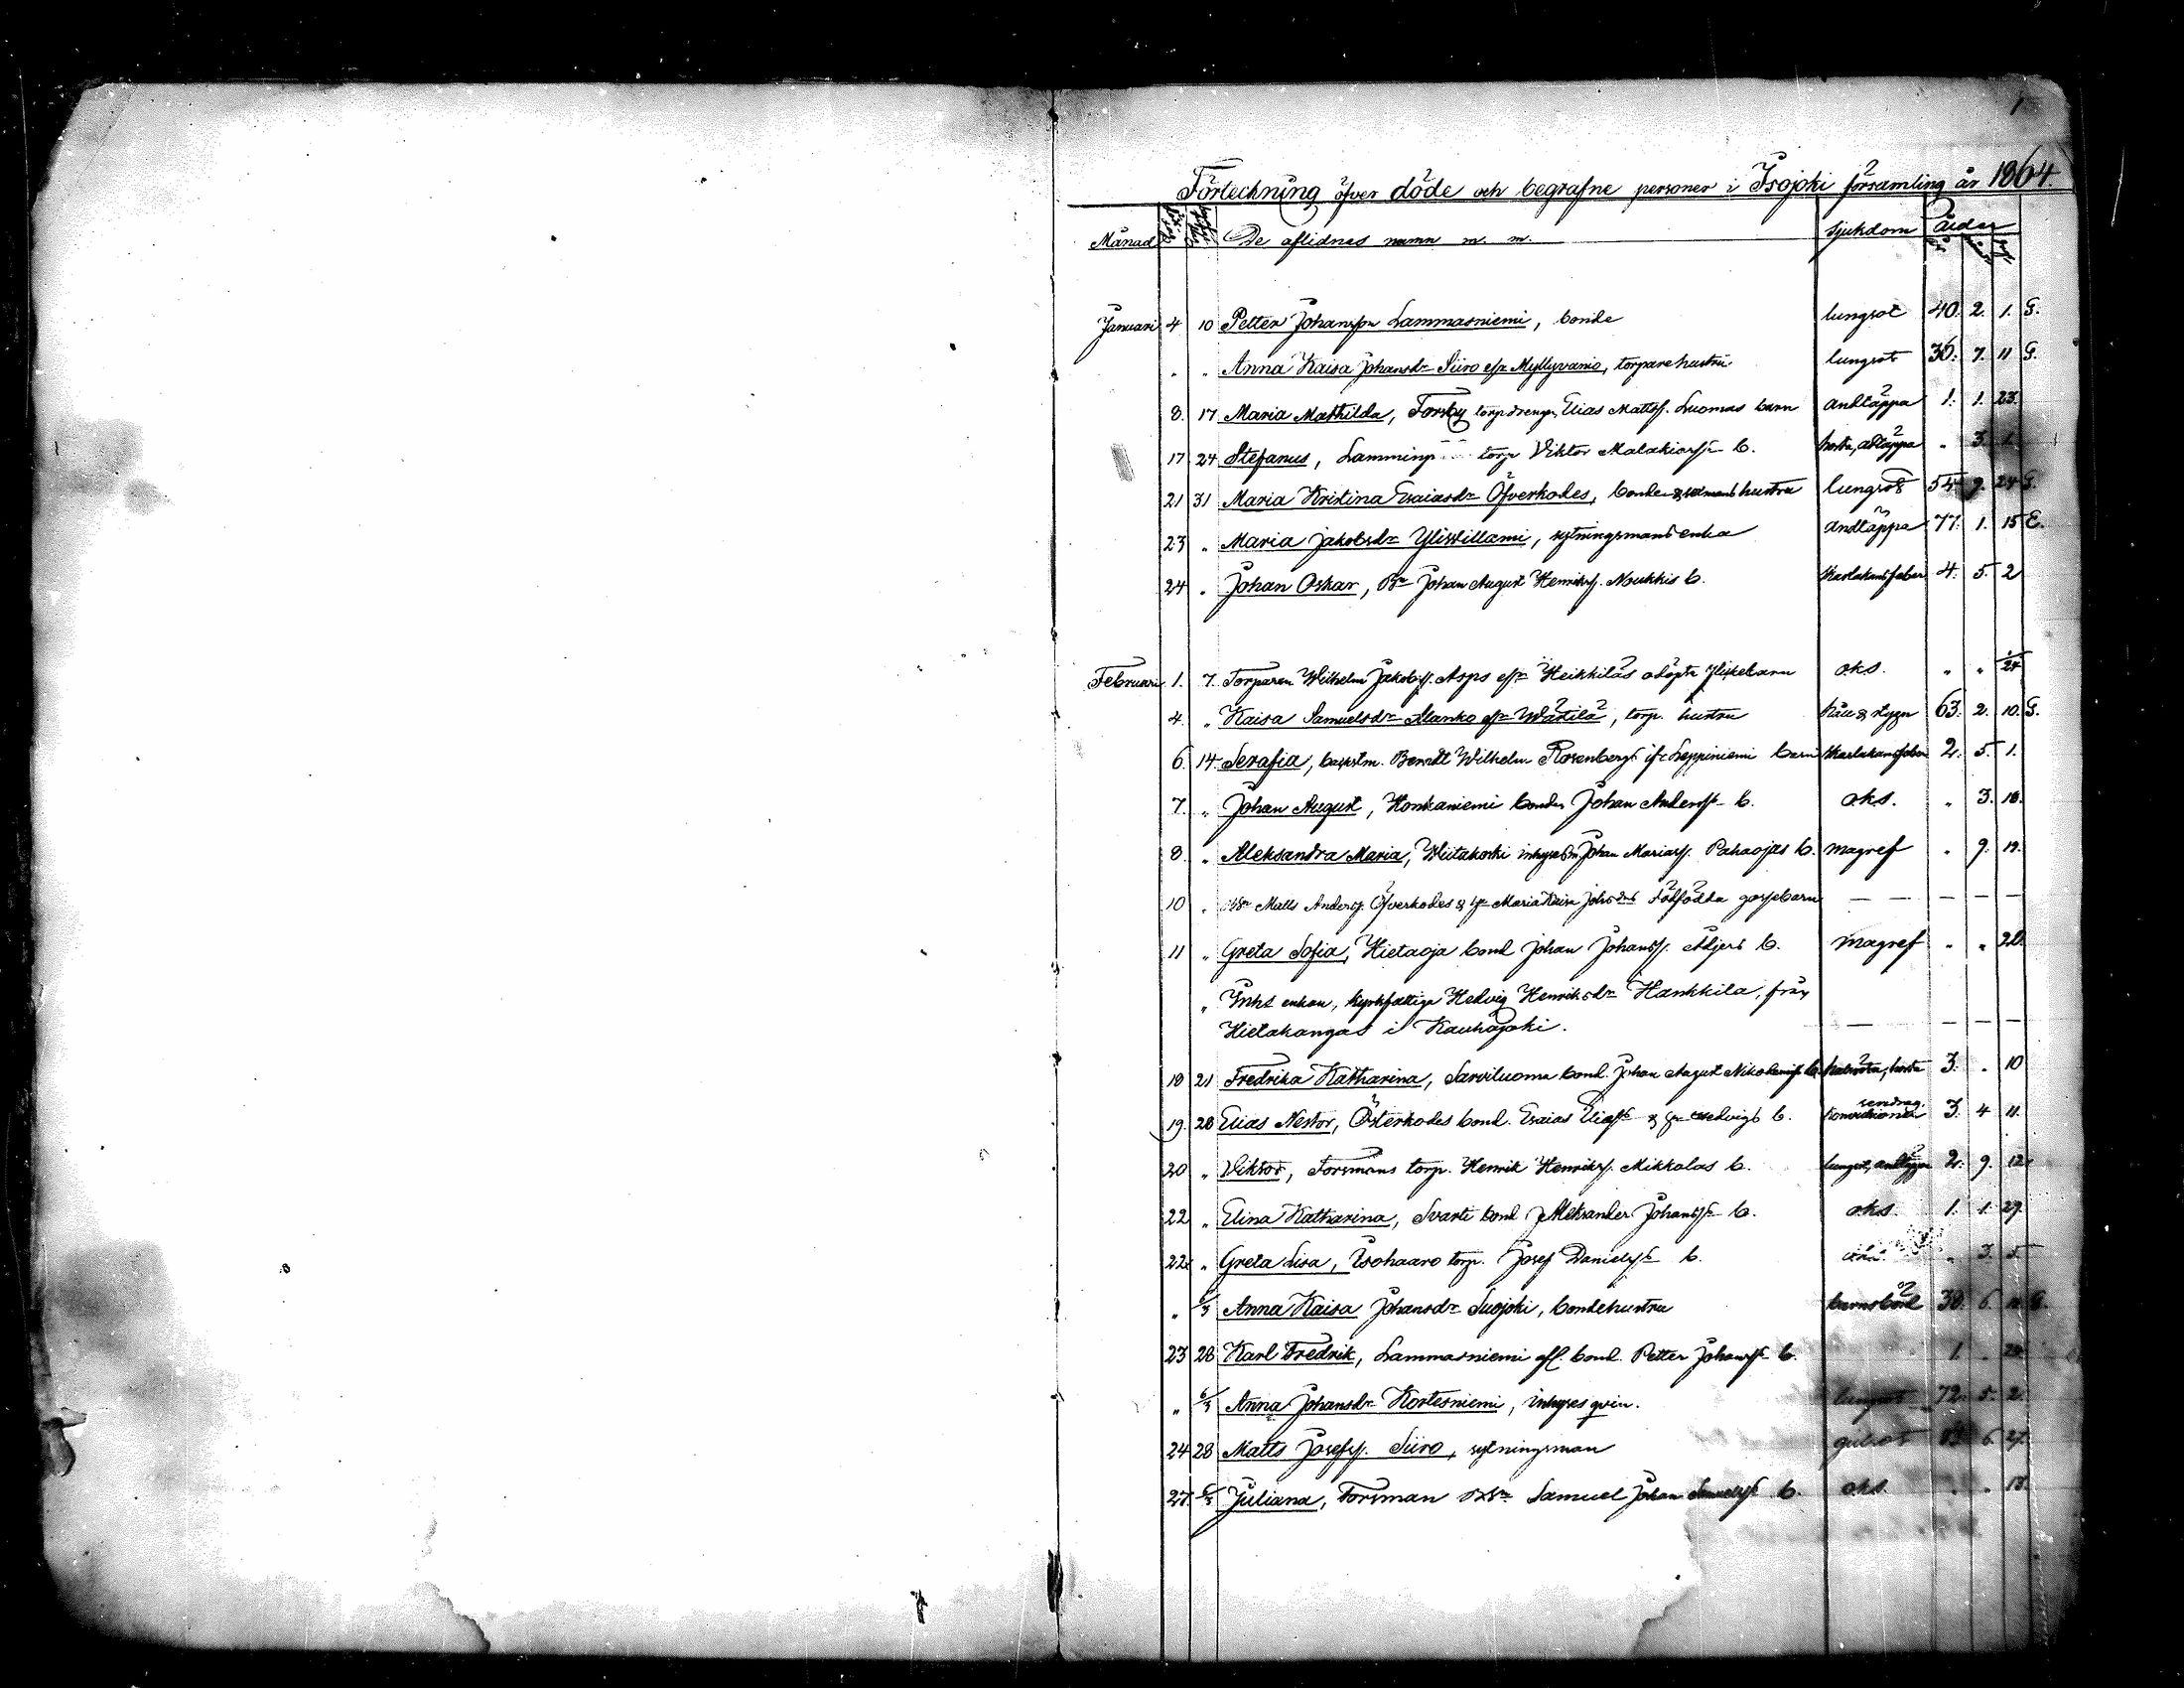 1
Förteckning öfver döde och begrafne personer i Isojoki församling år 1864.
Månad De aflidnas namn m. m. sjukdom ålder
Januari 4 10 Petter Johansson Lammasniemi, bonde lungsot 40. 2. 1. G.
" " Anna Kaisa Johansdr Siiro Myllyvanio, torparehustru lungsot 36. 7. 11 G.
8. 17 Maria Mathilda, Forsby torp.drengen Elias Mattsf. Luomas barn andtäppa 1. 1. 23.
17 24 Stefanus, torp Viktor b. hosta, " 3. 1.
21 31 Maria Kristina Esaiasdr Öfverkodes, bonde hustru lungsot 54 9. 24 G.
23 " Maria Jakobsdr Yliwillami, sytningsmans enka andtäppa 77. 1. 15 E.
24 " Johan Oskar, Johan August Henriksf. Noukkis b. skarlakansfeber 4. 5. 2
Februari 1. 7. Torparen Wilhelm Jakobsf. Asps Heikkiläs odöpta flickebarn oks. " " 24
4. " Kaisa Samuelsdr Alanko Wäätilä, torp. hustru håll & stygn 63. 2. 10. G.
6. 14. Serafia, Wilhelm Rosenbergs Leppiniemi barn skarlakansfeber 2. 5. 1.
7. " Johan August, Honkaniemi bonden Johan b. oks. " 3. 18.
8. " Aleksandra Maria, Wiitakoski Johan Pahaojas b. magref " 9. 19.
10 " Matts Andersf. Öfverkodes & Maria Kaisa gossebarn — — — —
11 " Greta Sofia, Hietaoja bond Johan Johansf. b. magref " " 20.
" enkan, kyrkfattiga Hedvig Henriksdr Hankkila, från
Hietakangas i Kauhajoki. — — — —
18 21 Fredrika Katharina, Sarviluoma bond. Johan August b. hosta 3. " 10
19. 28 Elias Nestor, Österkodes bond. Esaias & Hedvigs b. sendrag. 3. 4 11.
20 " Wiktor, Forsmans torp. Henrik Henriksf. Mikkolas b. lungsot, 2. 9. 12
22 " Elina Katharina, Svarti bond Aleksander b. oks. 1. 1. 29.
22 " Greta Lisa, Isohaaro torp. Josef b. " 3. 5.
" 6/3 Anna Kaisa Johansdr Suojoki, bondehustru barnsbörd 38. 6. G.
23 28 Karl Fredrik, Lammasniemi afl. bond. Petter b. 1 "
" 6/3 Anna Johansdr Kortesniemi, inhyses qvin. lungsot 72. 5. 2.
24 28 Matts Josefsf. Siiro, sytningsman 6. 27.
27. 6/3 Juliana, Forsman Samuel Johan b. oks " " 13.